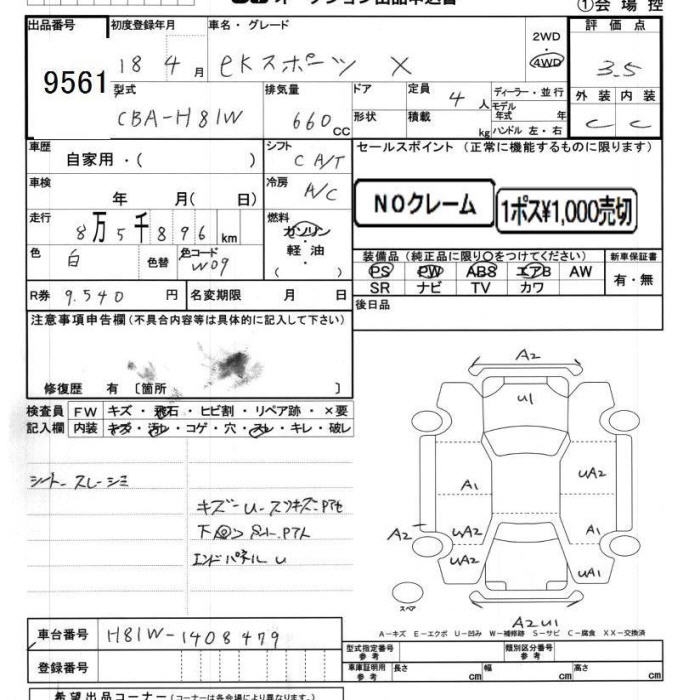 オークション出品申込書
①会場控
出品番号 初度登録年月 車名・グレード 2WD 評価点
9561 18 4月 eKスポーツ X 4WD 3.5
型式 排気量 ドア 定員 ディーラー・並行 外装 内装
CBA-H81W 660CC 4人 モデル年式 年 C C
形状 積載 kg ハンドル 左・右
車歴 シフト セールスポイント (正常に機能するものに限ります)
自家用・( ) C A/T
車検 冷房 NOクレーム 1ポス¥1,000売切
年 月( 日) A/C
走行 燃料
8万5千896km ガソリン
色 色替 色コード 軽油 装備品(純正品に限り○をつけてください) 新車保証書
白 W09 ( ) PS PW ABS エアB AW 有・無
SR ナビ TV カワ
R券 9.540円 名変期限 月 日 後日品
注意事項申告欄(不具合内容等は具体的に記入して下さい)
修復歴 有 〔箇所 〕
検査員 FW キズ・飛石・ヒビ割・リペア跡・×要
記入欄 内装 キズ・汚レ・コゲ・穴・スレ・キレ・破レ
シートスレーシミ
キズーU
エンドパネルU
A2
U1
UA2
A1
A1
A2
UA2
UA2
UA1
スペア
A2U1
A-キズ E-エクボ U-凹み W-補修跡 S-サビ C-腐食 XX-交換済
車台番号 H81W-1408479
型式指定番号 参考 類別区分番号 参考
登録番号 車庫証明用 参考 長さ cm 幅 cm 高さ cm
希望出品コーナー(コーナーは各会場により異なります。)